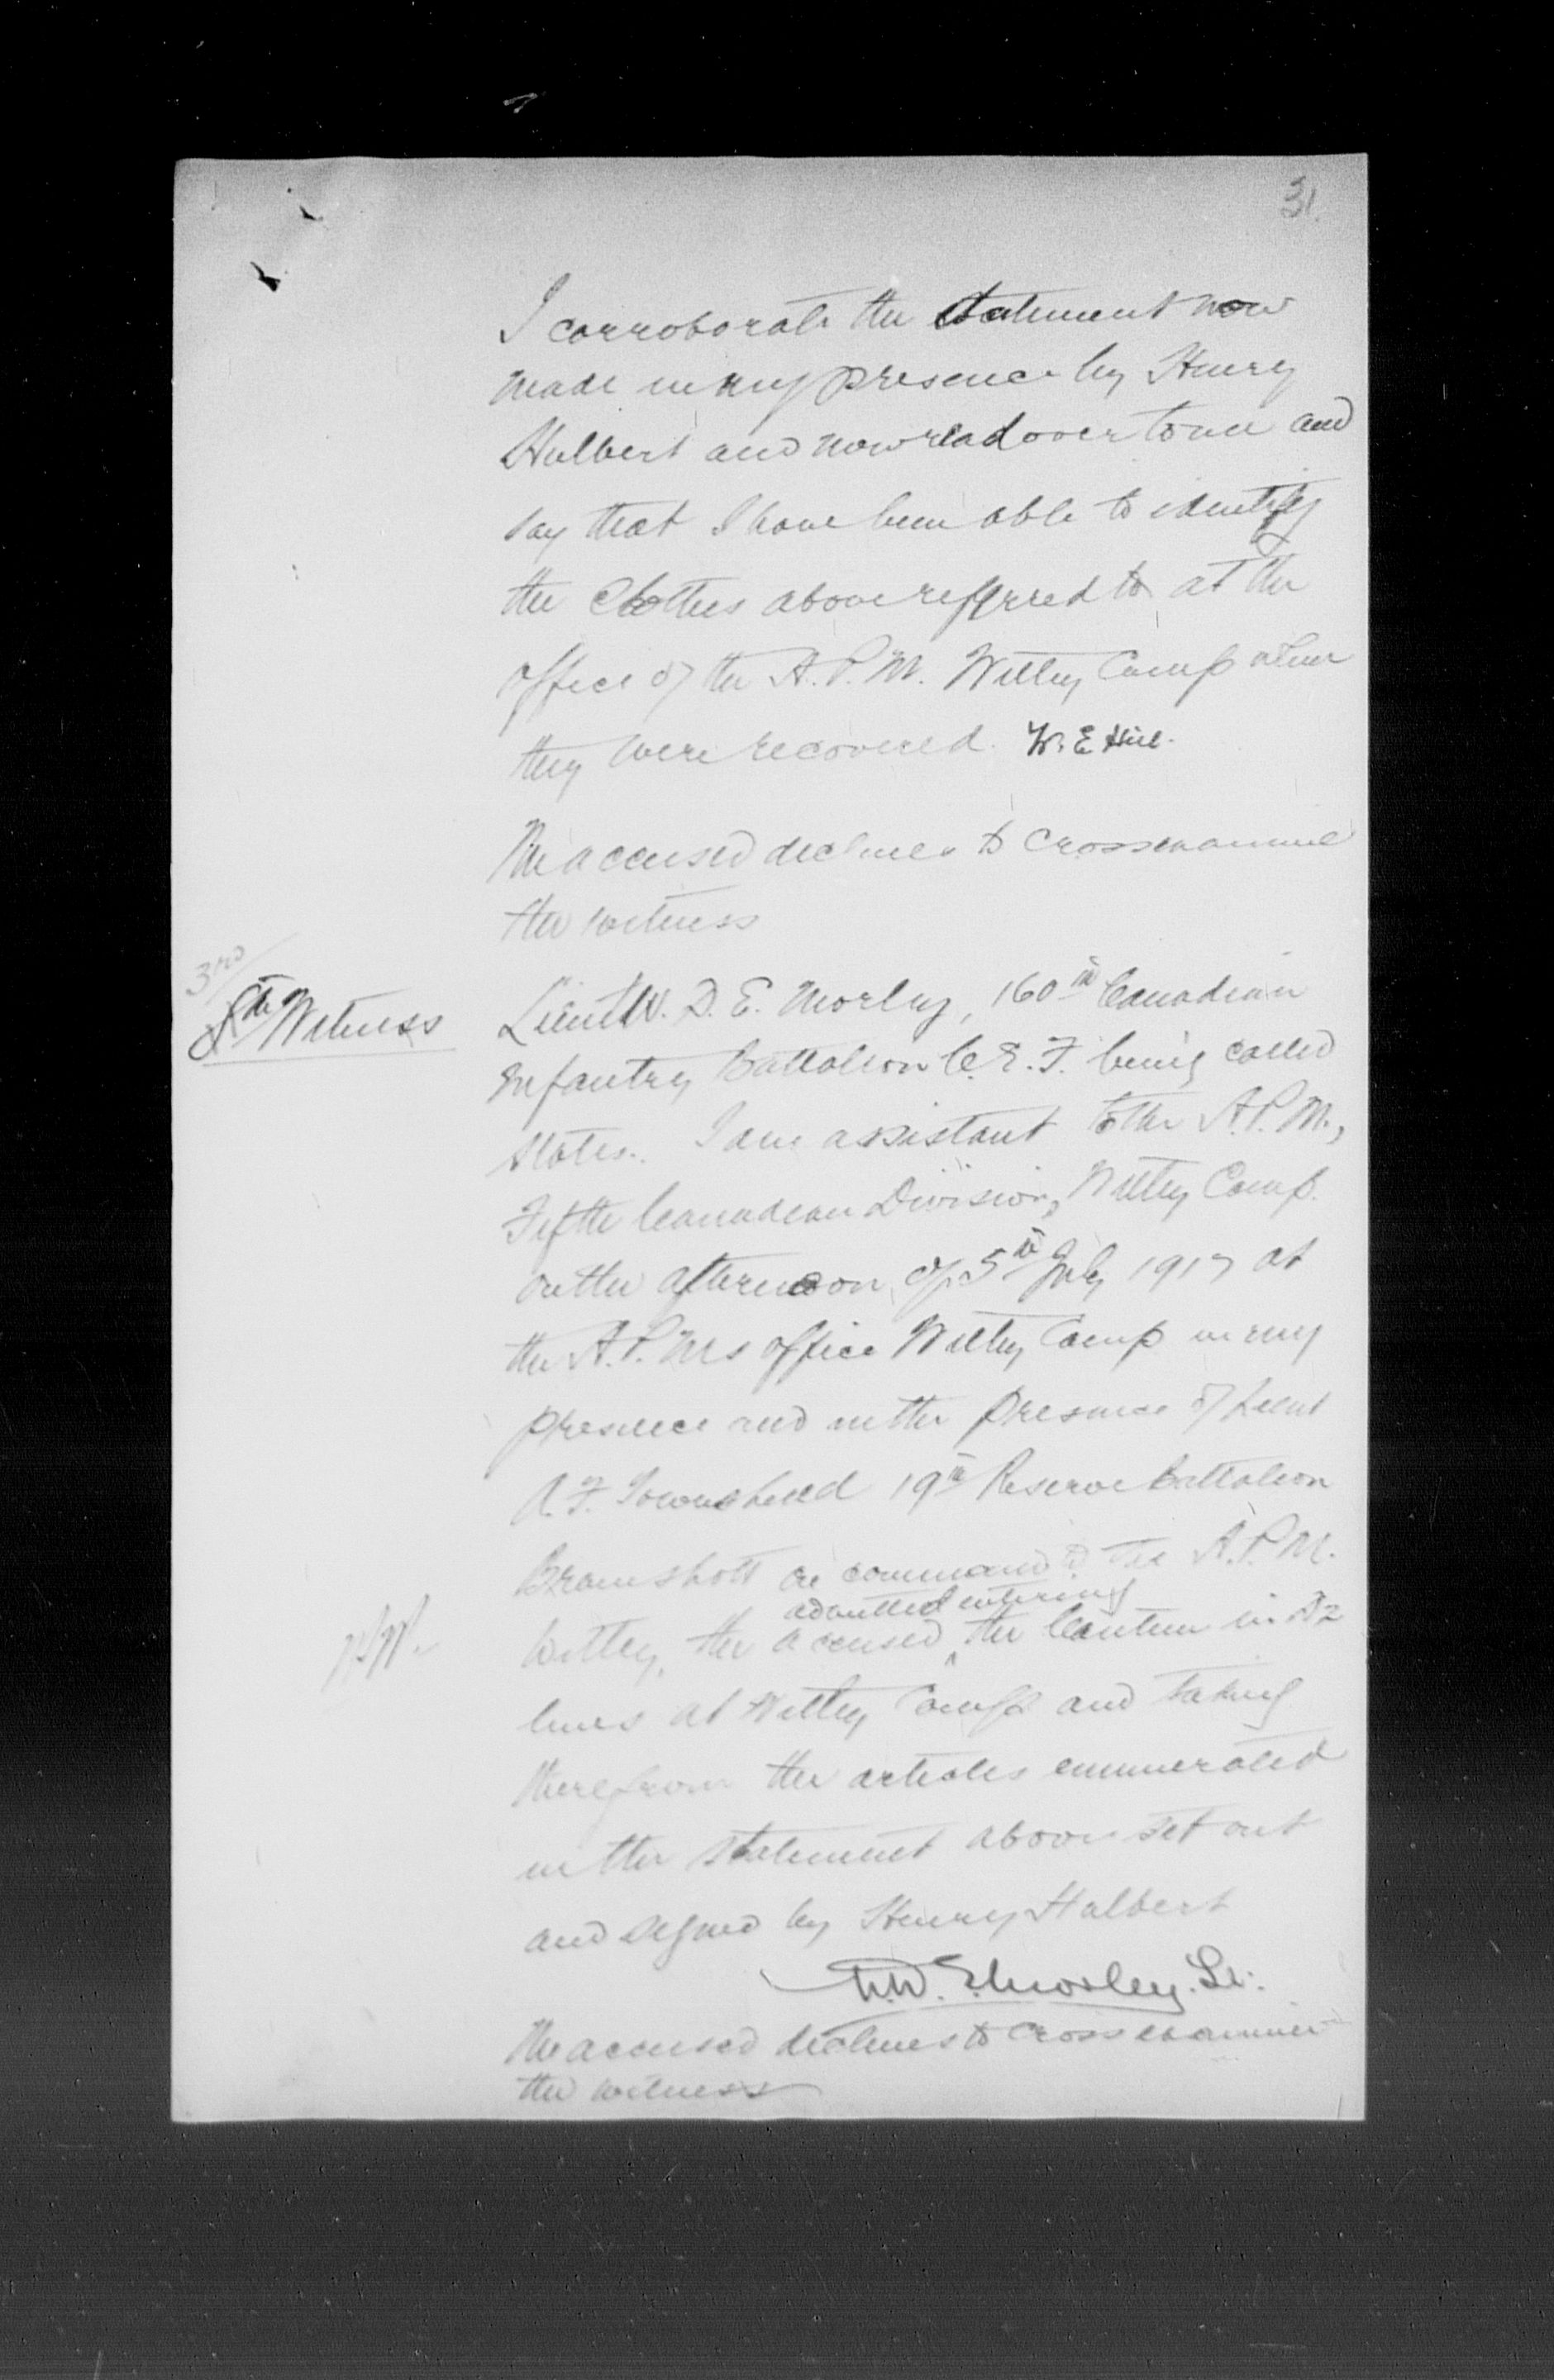 31.
I corroborate the statement now
made in my presence by Henry
Hulbert and now read over to me and
say that I have been able to identify
the clothes above referred to at the
office of the A.P.M. Witley Camp when
they were recovered. W. E Hill.
The accused declines to crossexamine
the witness
3rd
8th Witness
Lieut W. D. E. Morley, 160th Canadian
Infantry Battalion C.E.F. being called
states. I am assistant to the A.P.M.,
Fifth Canadian Division, Witley Camp.
On the afternoon of 5th July 1917 at
the A.P.Ms office Witley Camp in my
presence and in the presence of Lieut
A. F. Townshend 19th Reserve Battalion
Bramshott on command to the A.P.M.
admitted entering
Witley, the accused ^ the Canteen in A2
lines at Witley Camp and taking
therefrom the articles enumerated
in the statement above set out
and signed by Henry Halbert
W.D. E. Morley. Lt.
The accused declines to cross examine
the witness